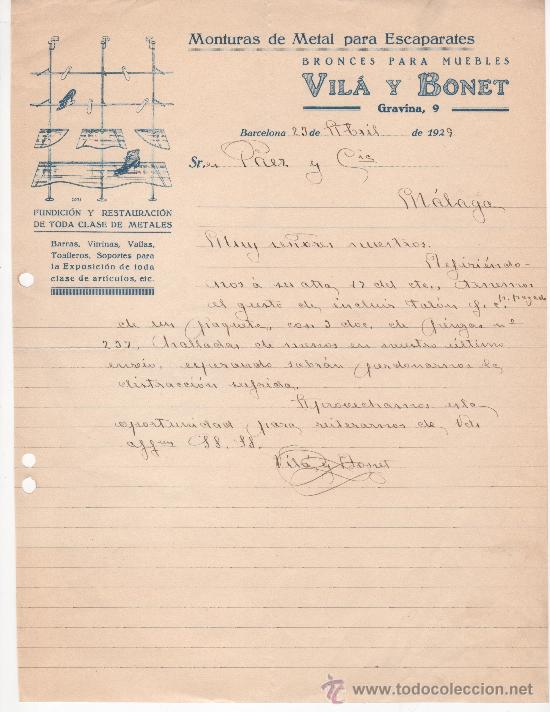 Monturas de Metal para Escaparates
BRONCES PARA MUEBLES
VILÁ Y BONET
Gravina, 9
Barcelona 23 de Abril de 1929
Sres. Páez y Cia
Málaga
FUNDICIÓN Y RESTAURACIÓN
DE TODA CLASE DE METALES
Barras, Vitrinas, Vallas,
Toalleros, Soportes para
la Exposición de toda
clase de artículos, etc.
Muy señores nuestros.
Refiriéndo-
nos á su atta 17 del cte., tenemos
el gusto de incluir talón f. c. p. pagado
de un paquete, con 3 doc. de pinzas nº
237, halladas de menos en nuestro último
envío, esperando sabrán perdonarnos la
distracción sufrida.
Aprovechamos esta
oportunidad para reiterarnos de Vds
affmos SS. SS.
Vilá y Bonet
www.todocoleccion.net